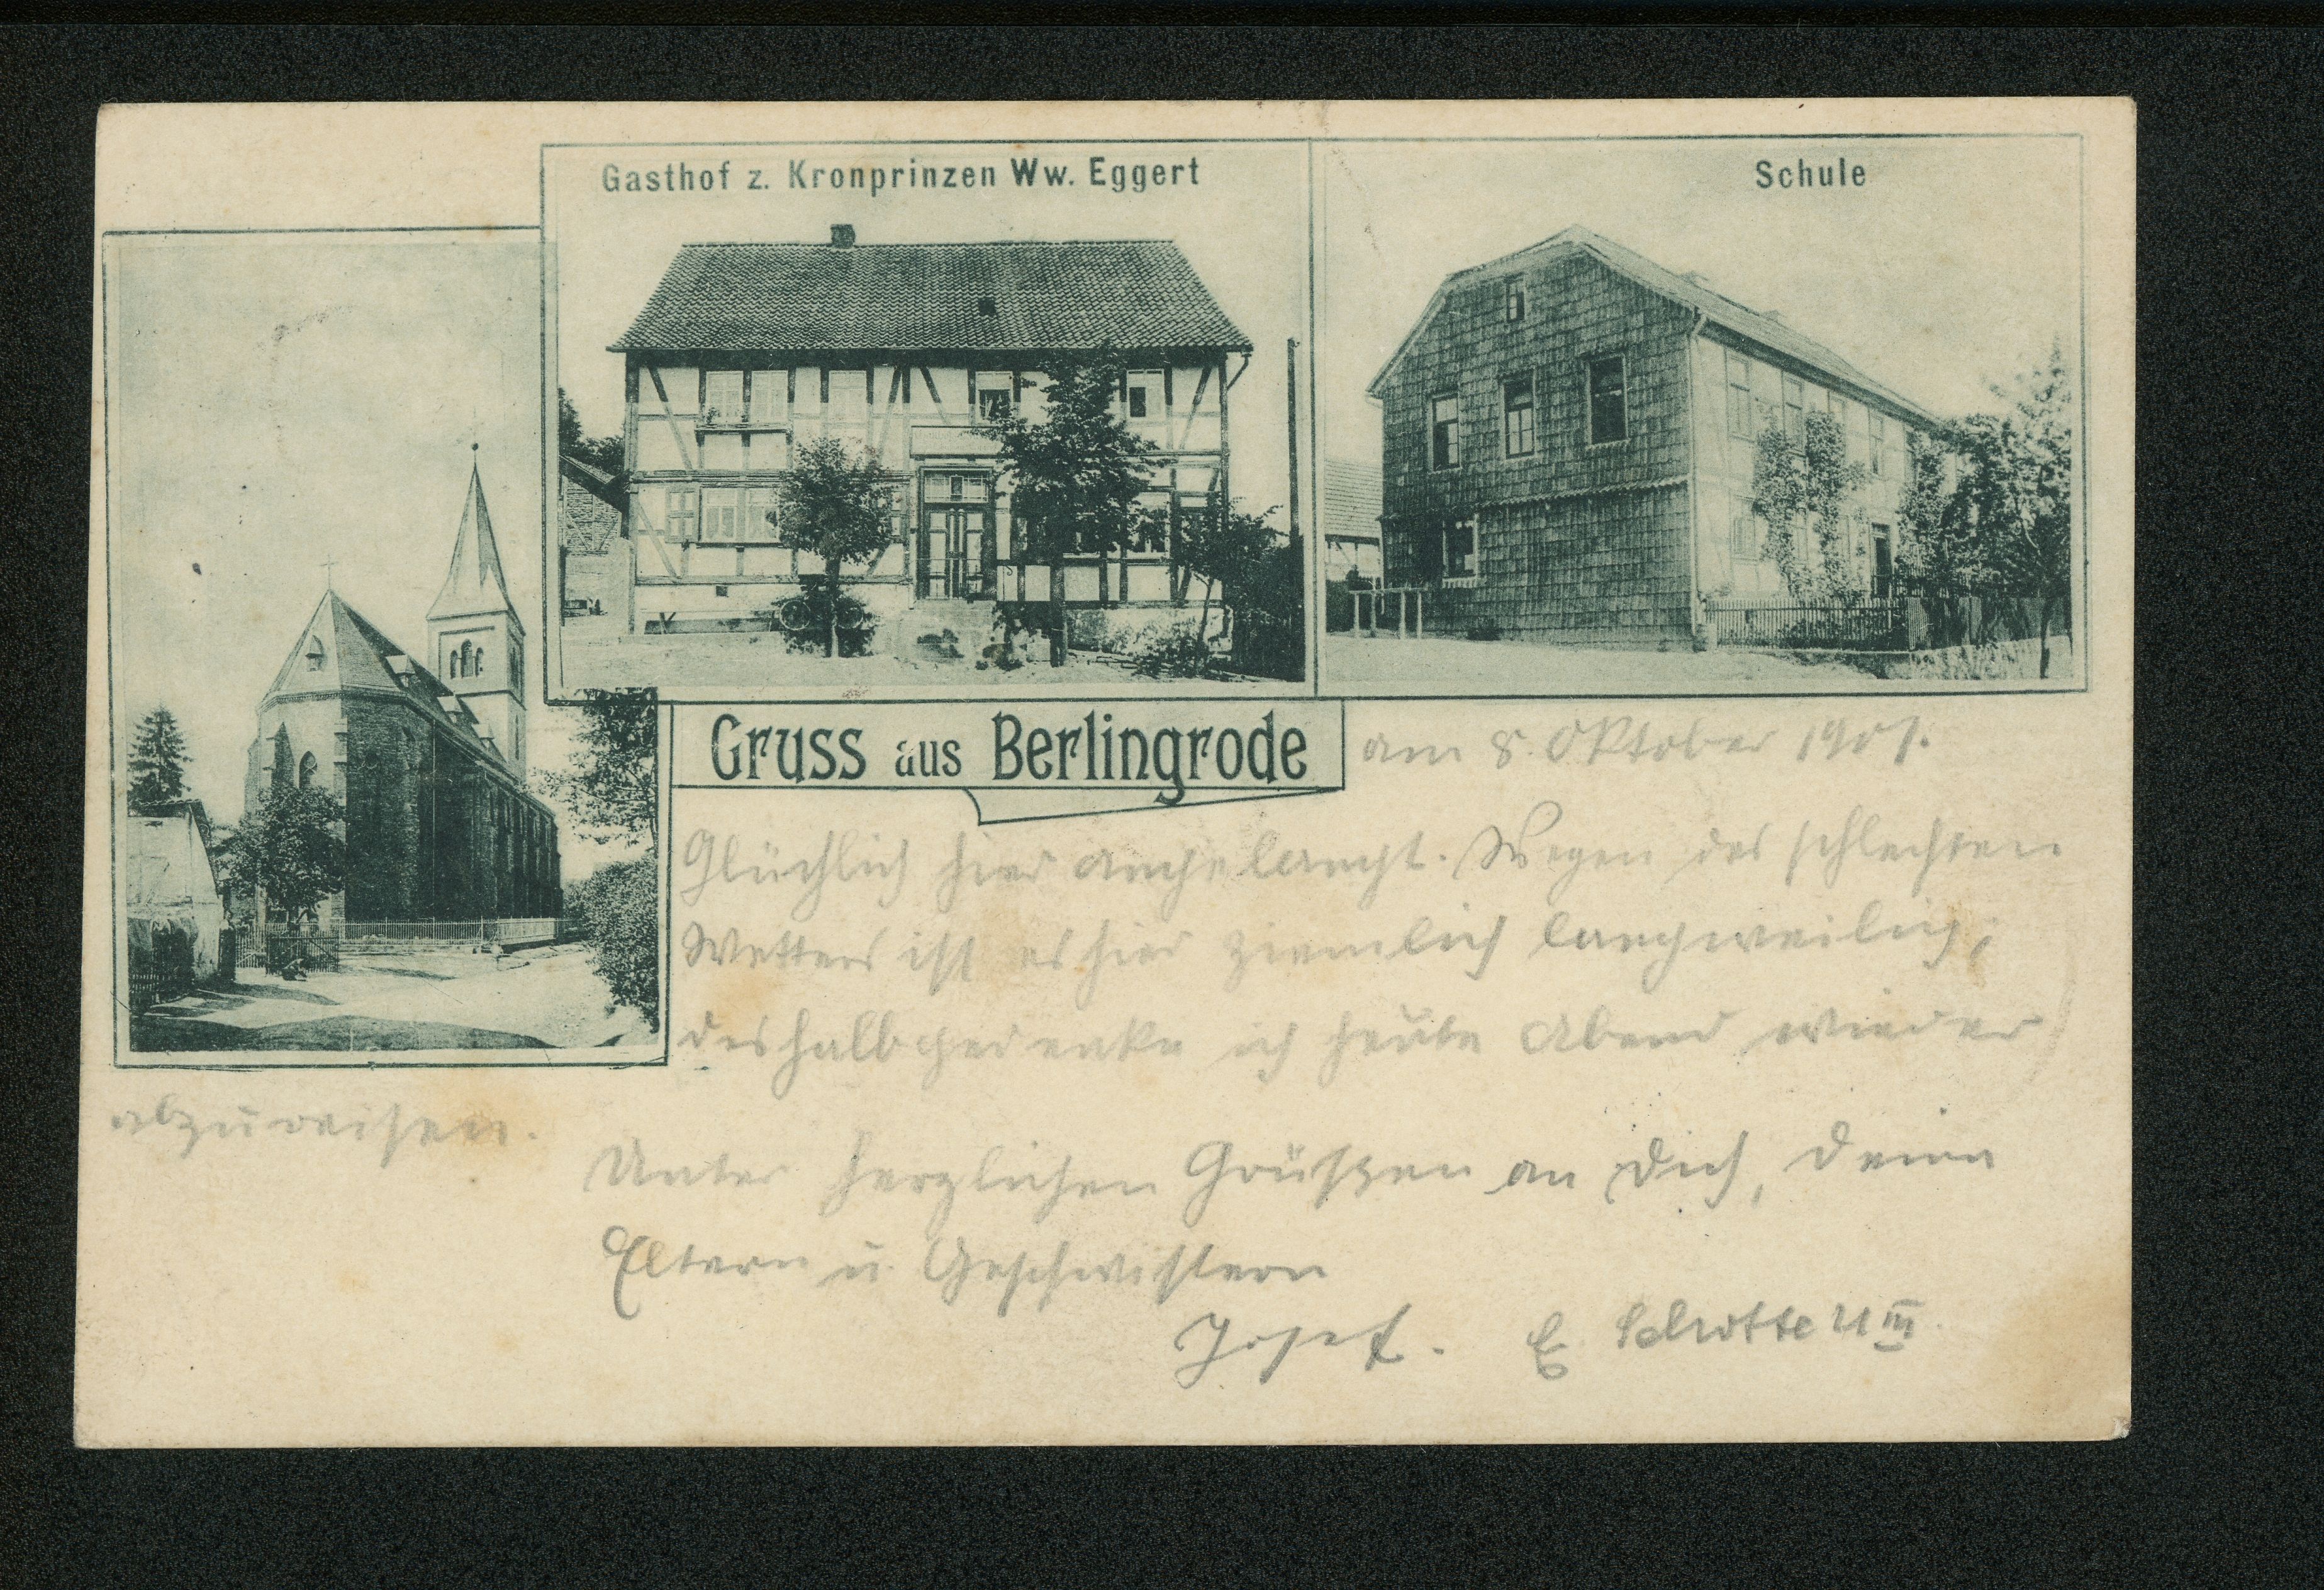 Gasthof z. Kronprinzen Ww. Eggert
Schule
Gruss aus Berlingrode
am 8. Oktober 1901.
Glücklich hier angelangt. Wegen des schlechten
Wetters ist es hier ziemlich langweilig;
deshalb gedenke ich heute Abend wieder
abzureisen.
Unter herzlichen Grüßen an Dich, Deine
Eltern u. Geschwistern
Josef. E. Schrotte UIII.